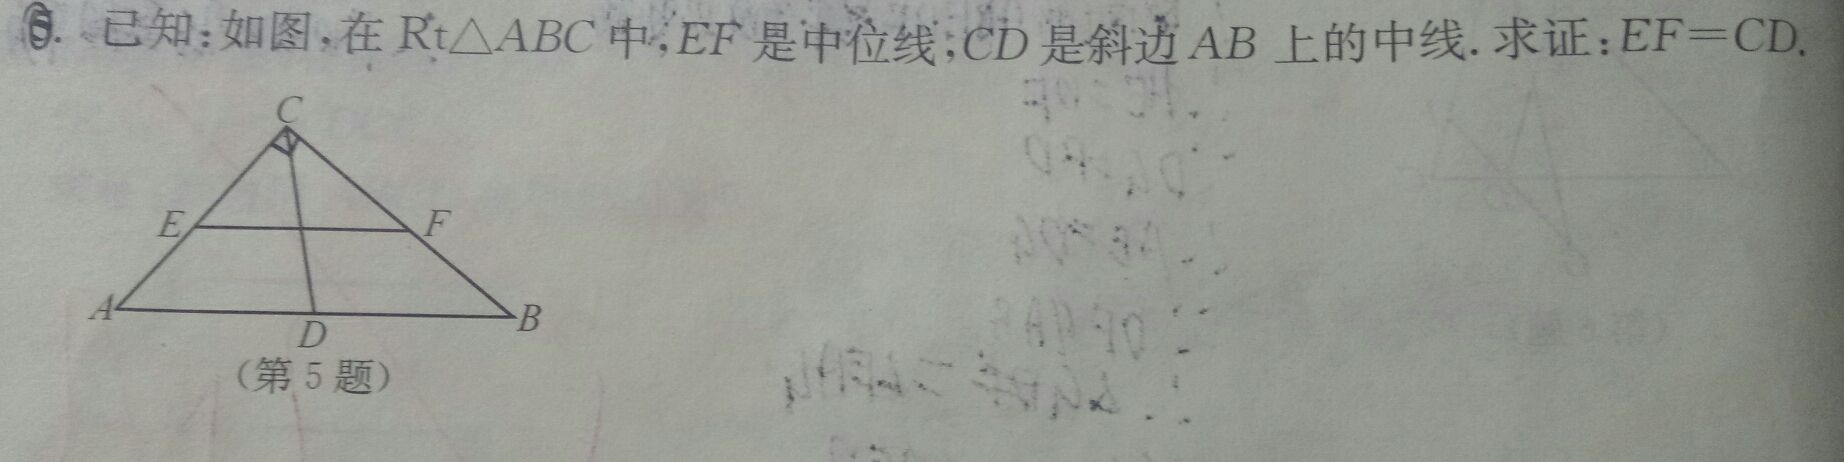 已知:如图,在 Rt△ABC 中,EF 是中位线,CD 是斜边 AB 上的中线.求证:EF=CD.
C
E
F
A
D
B
(第 5 题)